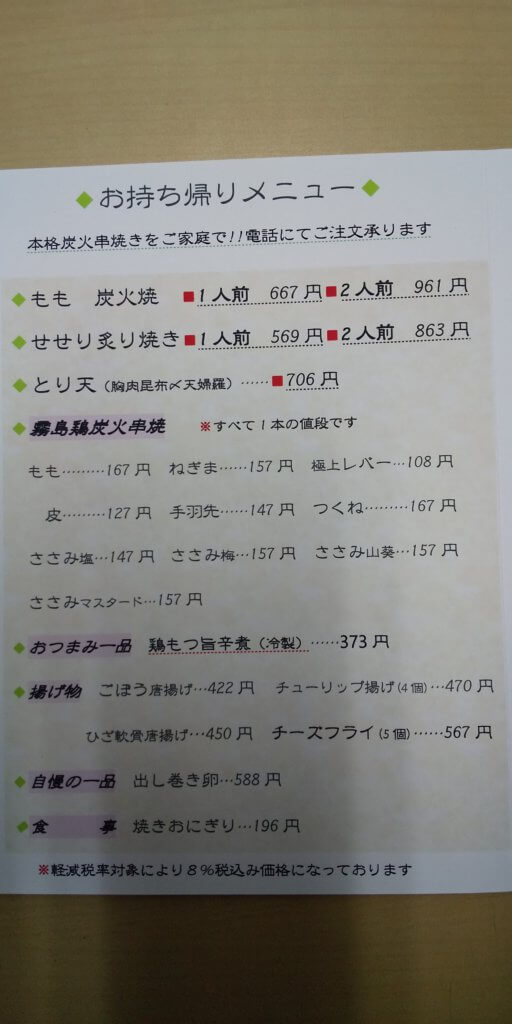 ◆お持ち帰りメニュー◆
本格炭火串焼きをご家庭で!!電話にてご注文承ります
◆もも 炭火焼 ■1人前 667円■2人前 961円
◆せせり炙り焼き■1人前 569円■2人前 863円
◆とり天（胸肉昆布〆天婦羅）……■706円
◆霧島鶏炭火串焼 ※すべて1本の値段です
もも………167円 ねぎま……157円 極上レバー…108円
皮………127円 手羽先……147円 つくね………167円
ささみ塩…147円 ささみ梅…157円 ささみ山葵…157円
ささみマスタード…157円
◆おつまみ一品 鶏もつ旨辛煮（冷製）……373円
◆揚げ物 ごぼう唐揚げ…422円 チューリップ揚げ(4個)…470円
ひざ軟骨唐揚げ…450円 チーズフライ(5個)……567円
◆自慢の一品 出し巻き卵…588円
◆食 事 焼きおにぎり…196円
※軽減税率対象により8%税込み価格になっております